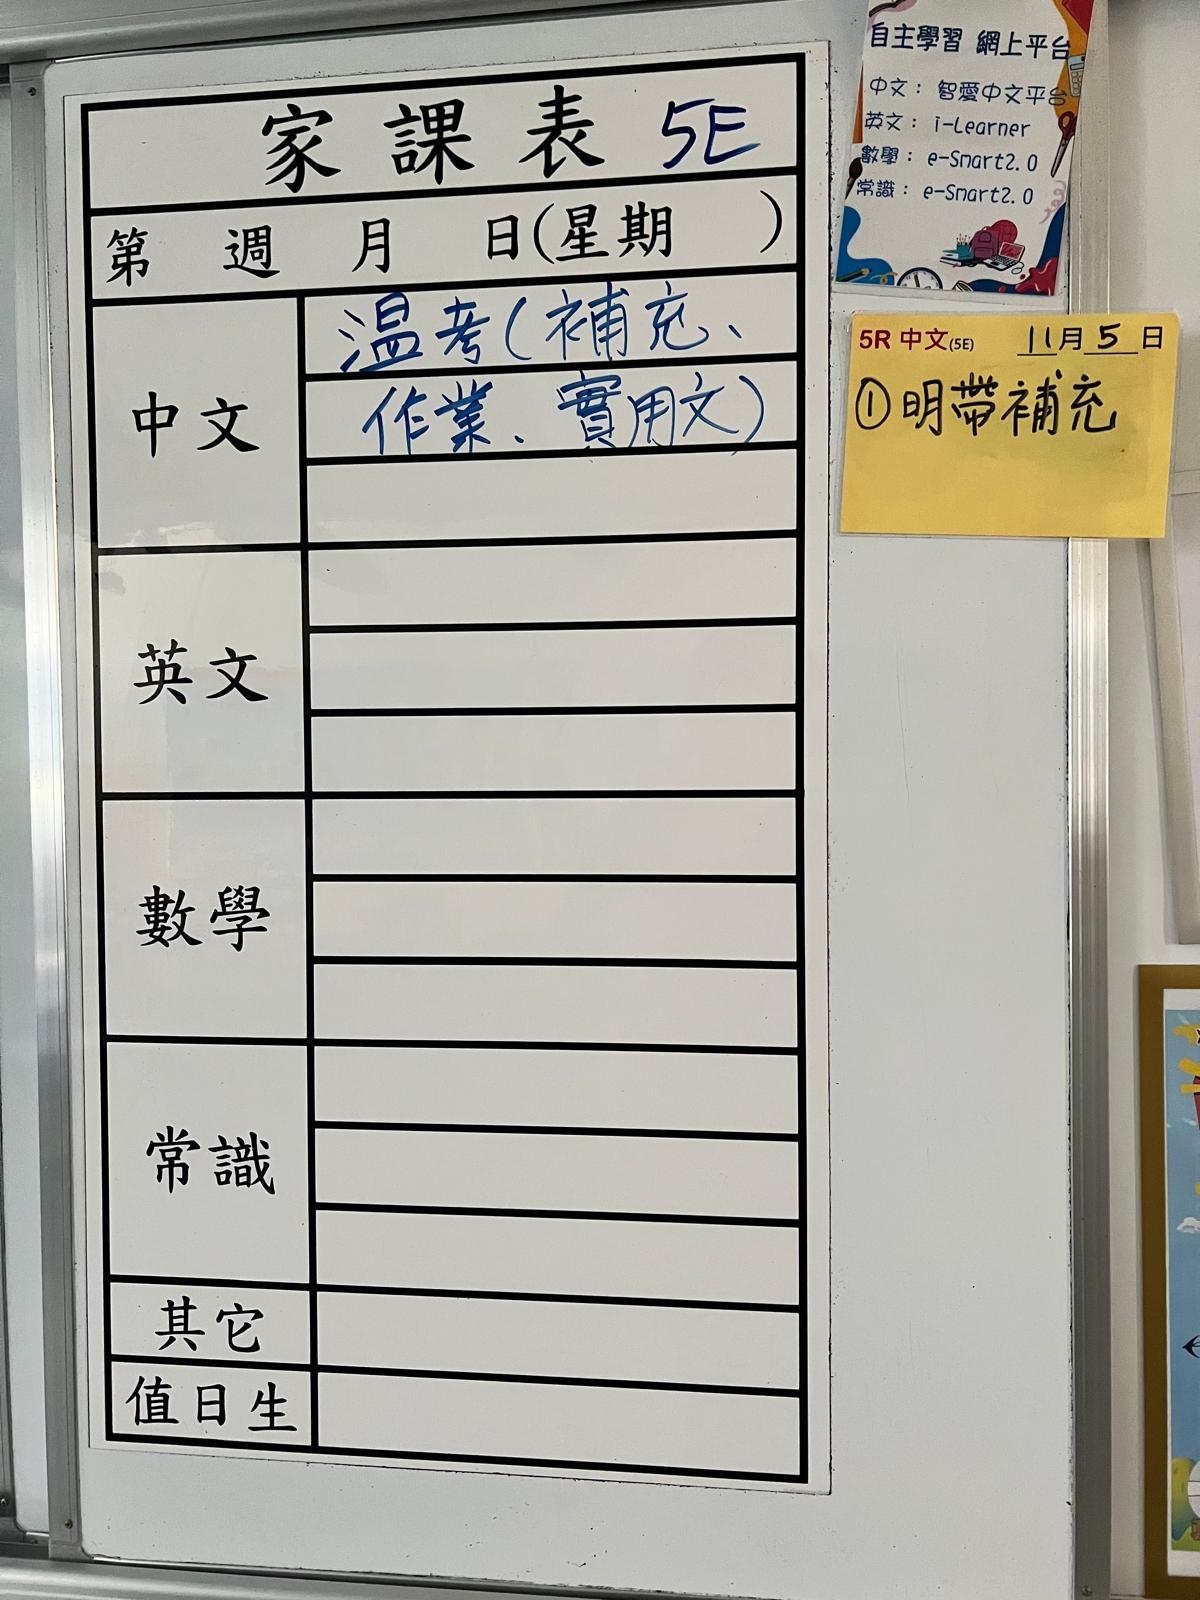 家課表 5E
第 週 月 日(星期 )
中文
溫考(補充、
作業、實用文)
英文
數學
常識
其它
值日生
自主學習 網上平台
中文： 智愛中文平台
英文： i-Learner
數學： e-Smart2.0
常識： e-Smart2.0
5R 中文(5E) 11月5日
①明帶補充